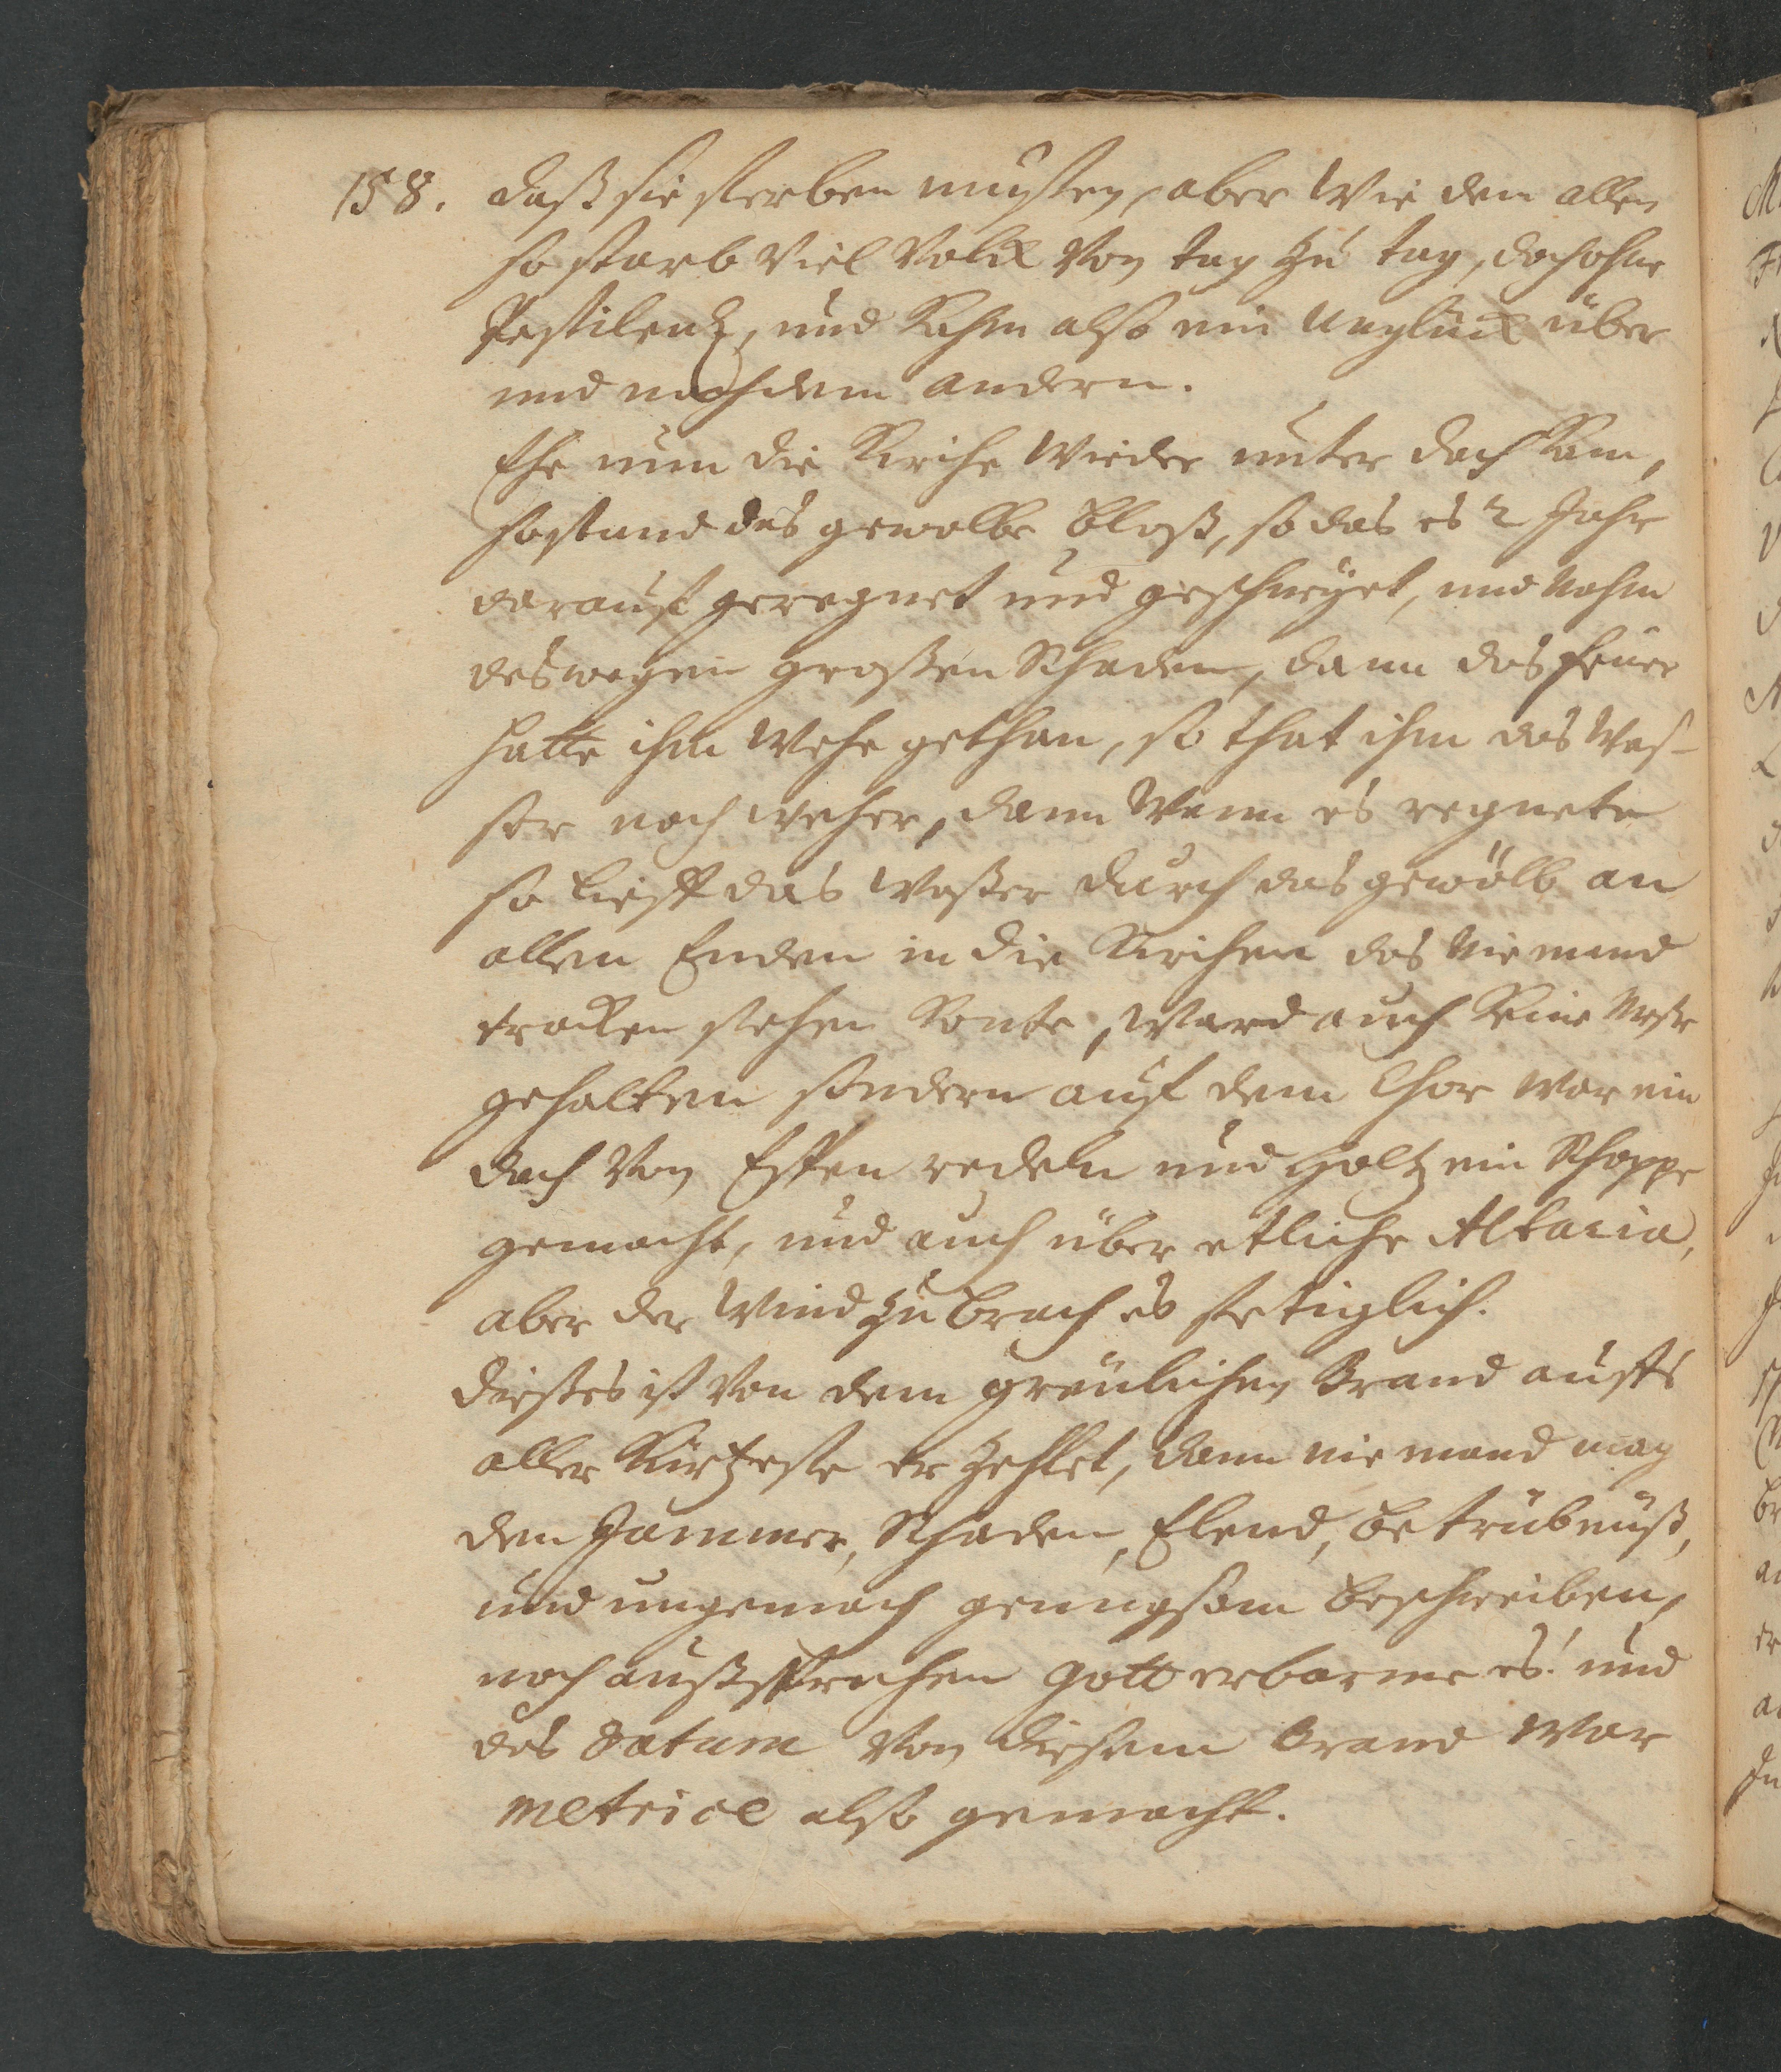 158. daß sie sterben musten, aber wie dem allen
so starb viel Volck von tag zu tag, doch ohne
Pestilentz, und Kahm also ein Unglück über
und nach dem andern.
Ehe nun die Kirche wieder unter dach Kam,
so stund das gewolbe bloß, so das es 2 Jahr
darauf geregnet und geschneyet, und nahm
deswegen großen Schaden, dann das feuer
hatte ihm wehe gethan, so that ihm das Was-
ser noch weher, dann wann es regnete
so lieff das waßer durch das gewölb an
allen Enden in die Kirchen das niemand
trocken stehen Konte, ward auch Keine Meße
gehalten sondern auf dem Chor war ein
dach von Espen redeln und Holtz ein Schoppe
gemacht, und auch über etliche Altaria,
aber der Wind zubrach es stetiglich.
dießes ist von dem greulichen Brand auffs
aller Kürtzeste erzehlet, dann niemand mag
den Jammer, Schaden, Elend, betrübnüß,
und ungemach genugsam beschreiben,
noch außsprechen Gott erbarme es! und
das Datum von diesem Brand war
metrice also gemacht.